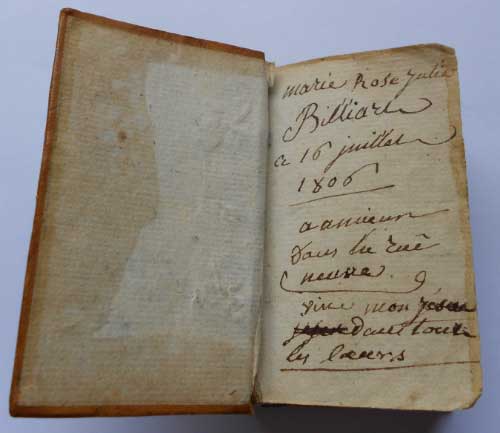 marie Rose Julie
Billiart
ce 16 juillet
1806
a amiens
dans la rue
neuve
vive mon jésus
dans tous
les cœurs